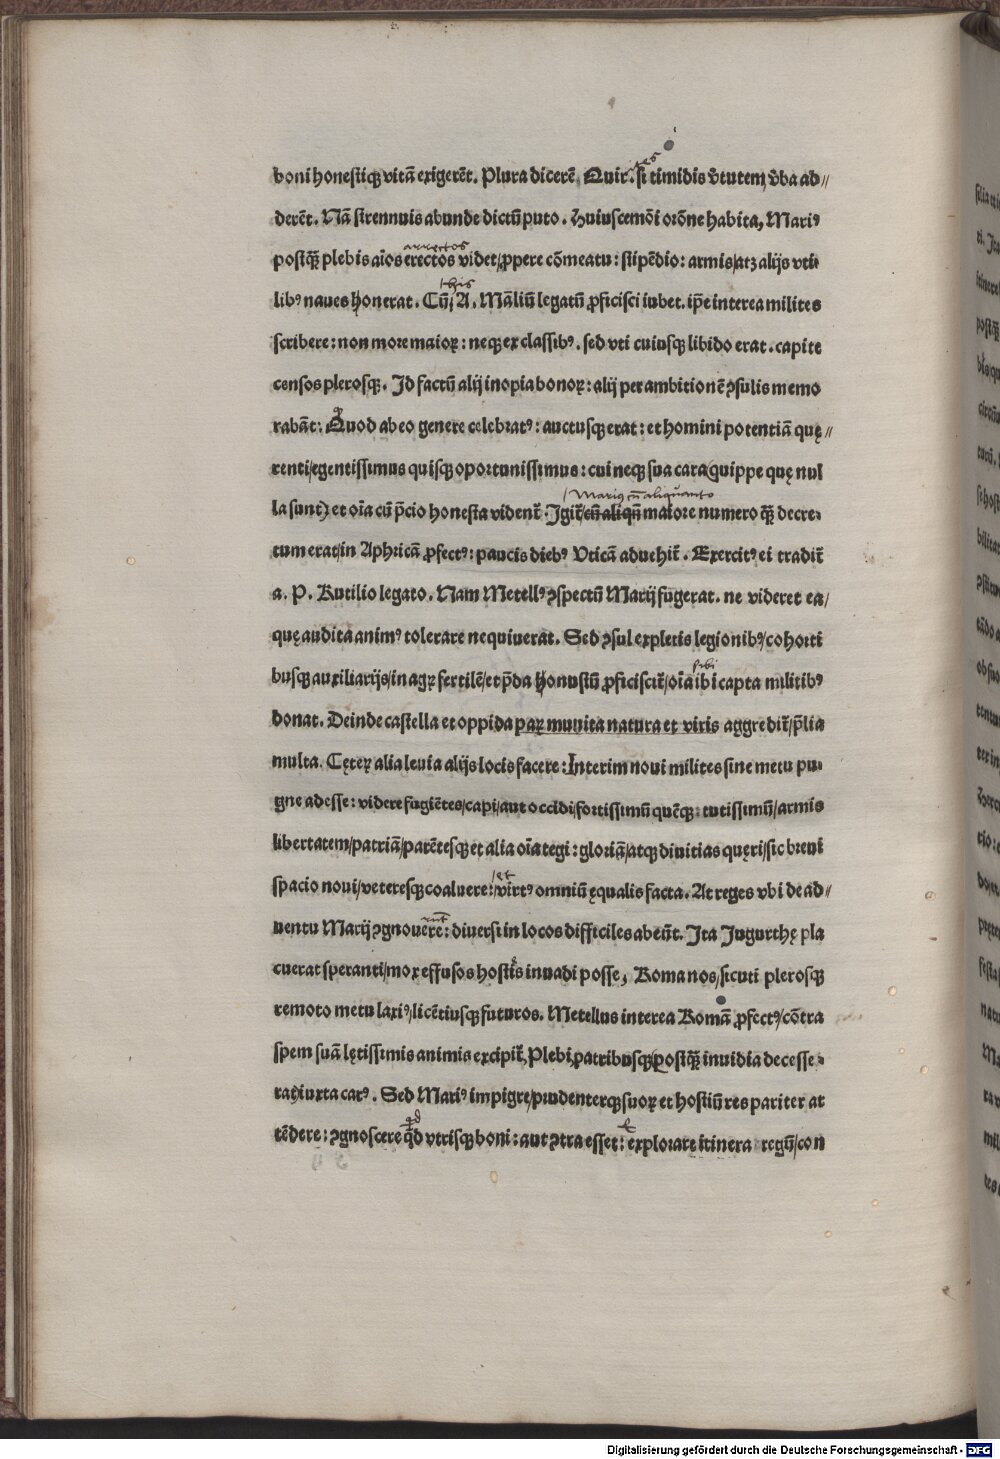 boni honestiqꝫ vitā exigerēt. Plura dicerē Quir. si timidis v̄tutem v̄ba ad//
tes
derēt. Nā strennuis abunde dictū puto. Huiuscemōi orōne habita, Mariꝰ
postq̄ꝫ plebis aīos erectos videt/ꝓpere cōmeatu: stipēdio: armis/atꝫ alijs vti
arrectos
libꝰ naues honerat. Cū A. Māliū legatū ꝓficisci iubet. ip̄e interea milites
his
scribere: non more maioꝝ: neqꝫ ex classibꝰ. sed vti cuiusqꝫ libido erat. capite
censos plerosqꝫ. Id factū alij inopia bonoꝝ: alij per ambitionē ꝯsulis memo
rabāt: Quod ab eo genere celebratꝰ: auctusqꝫ erat: et homini potentiā quę//
q
renti/egentissimus quisqꝫ oportunissimus: cui neqꝫ sua cara (quippe quę nul
la sunt) et oīa cū p̄cio honesta vident̄. Igit̄/cū aliqū maiore numero q̄ꝫ decre
/Mariꝰ cū aliquanto
tum erat/in Aphricā ꝓfectꝰ: paucis diebꝰ Vticā aduehit̄. Exercitꝰ ei tradit̄
a. P. Rutilio legato. Nam Metellꝰ ꝯspectū Marij fugerat. ne videret ea/
quę audita animꝰ tolerare nequiuerat. Sed ꝯsul expletis legionibꝰ/cohorti
busqꝫ auxiliarijs/in agꝝ fertilē/et p̄da honustū ꝓficiscit̄/oīa ibi capta militibꝰ
sibi
donat. Deinde castella et oppida paꝝ munita natura et viris aggredit̄/p̄lia
multa. Cęteꝝ alia leuia alijs locis facere: Interim noui milites sine metu pu
gne adesse: videre fugiētes/capi/aut occidi/fortissimū quēqꝫ tutissimū/armis
libertatem/patriā/parētesqꝫ et alia oīa tegi: gloriā/atqꝫ diuitias quęri/sic breui
spacio noui/veteresqꝫ coaluere: /virtꝰ omniū ęqualis facta. At reges vbi de ad//
/et
uentu Marij ꝯgnouere: diuersi in locos difficiles abeūt. Ita Iugurthę pla
runt
cuerat speranti/mox effusos hostis inuadi posse, Romanos/sicuti plerosqꝫ
remoto metu laxiꝰ/licētiusqꝫ futuros. Metellus interea Romā ꝓfectꝰ/cōtra
spem suā lętissimis animis excipit̄, Plebi, patribusqꝫ (postq̄ꝫ inuidia decesse
rat) iuxta carꝰ. Sed Mariꝰ impigre/prudenterqꝫ suoꝝ et hostiū res pariter at
tēdere: ꝯgnoscere q̄d vtrisqꝫ boni: aut ꝯtra esset: explorare itinera regū/con
qd
Digitalisierung gefördert durch die Deutsche Forschungsgemeinschaft - DFG